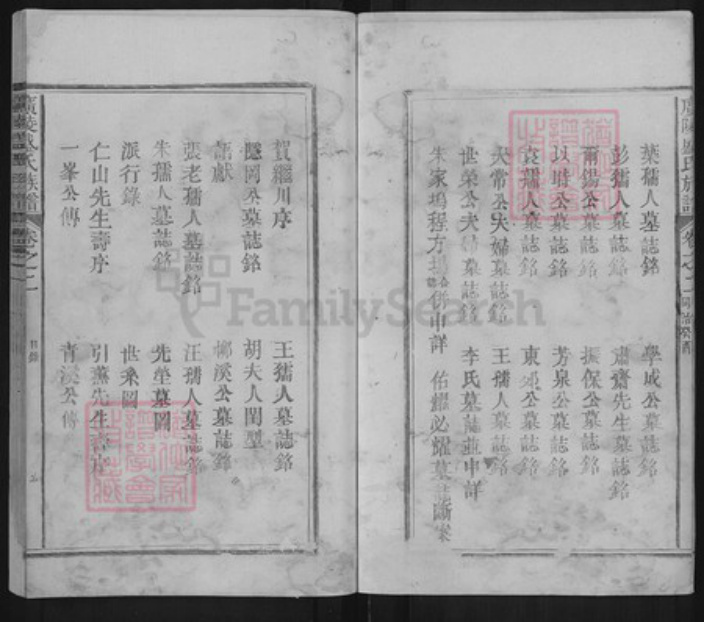 葉孺人墓誌銘
學成公墓誌銘
彭孺人墓誌銘
肅齋先生墓誌銘
爾錫公墓誌銘
振保公墓誌銘
以時公墓誌銘
芳泉公墓誌銘
袁孺人墓誌銘
東 公墓誌銘
太常公夫婦墓誌銘
王孺人墓誌銘
世榮公夫婦墓誌銘
李氏墓誌並申詳
朱家塢程方 供申詳
佑耀必耀墓 斷案
賀繼川序
王孺人墓誌銘
公墓誌銘
胡夫人閫型
語獻
柳溪公墓誌銘
張老孺人墓誌銘
汪孺人墓誌銘
朱孺人墓誌銘
先塋墓圖
派行錄
世系圖
仁山先生壽序
引薰先生壽序
一峯公傳
青溪公傳
廣陵 氏族譜
卷之二
目錄
FamilySearch